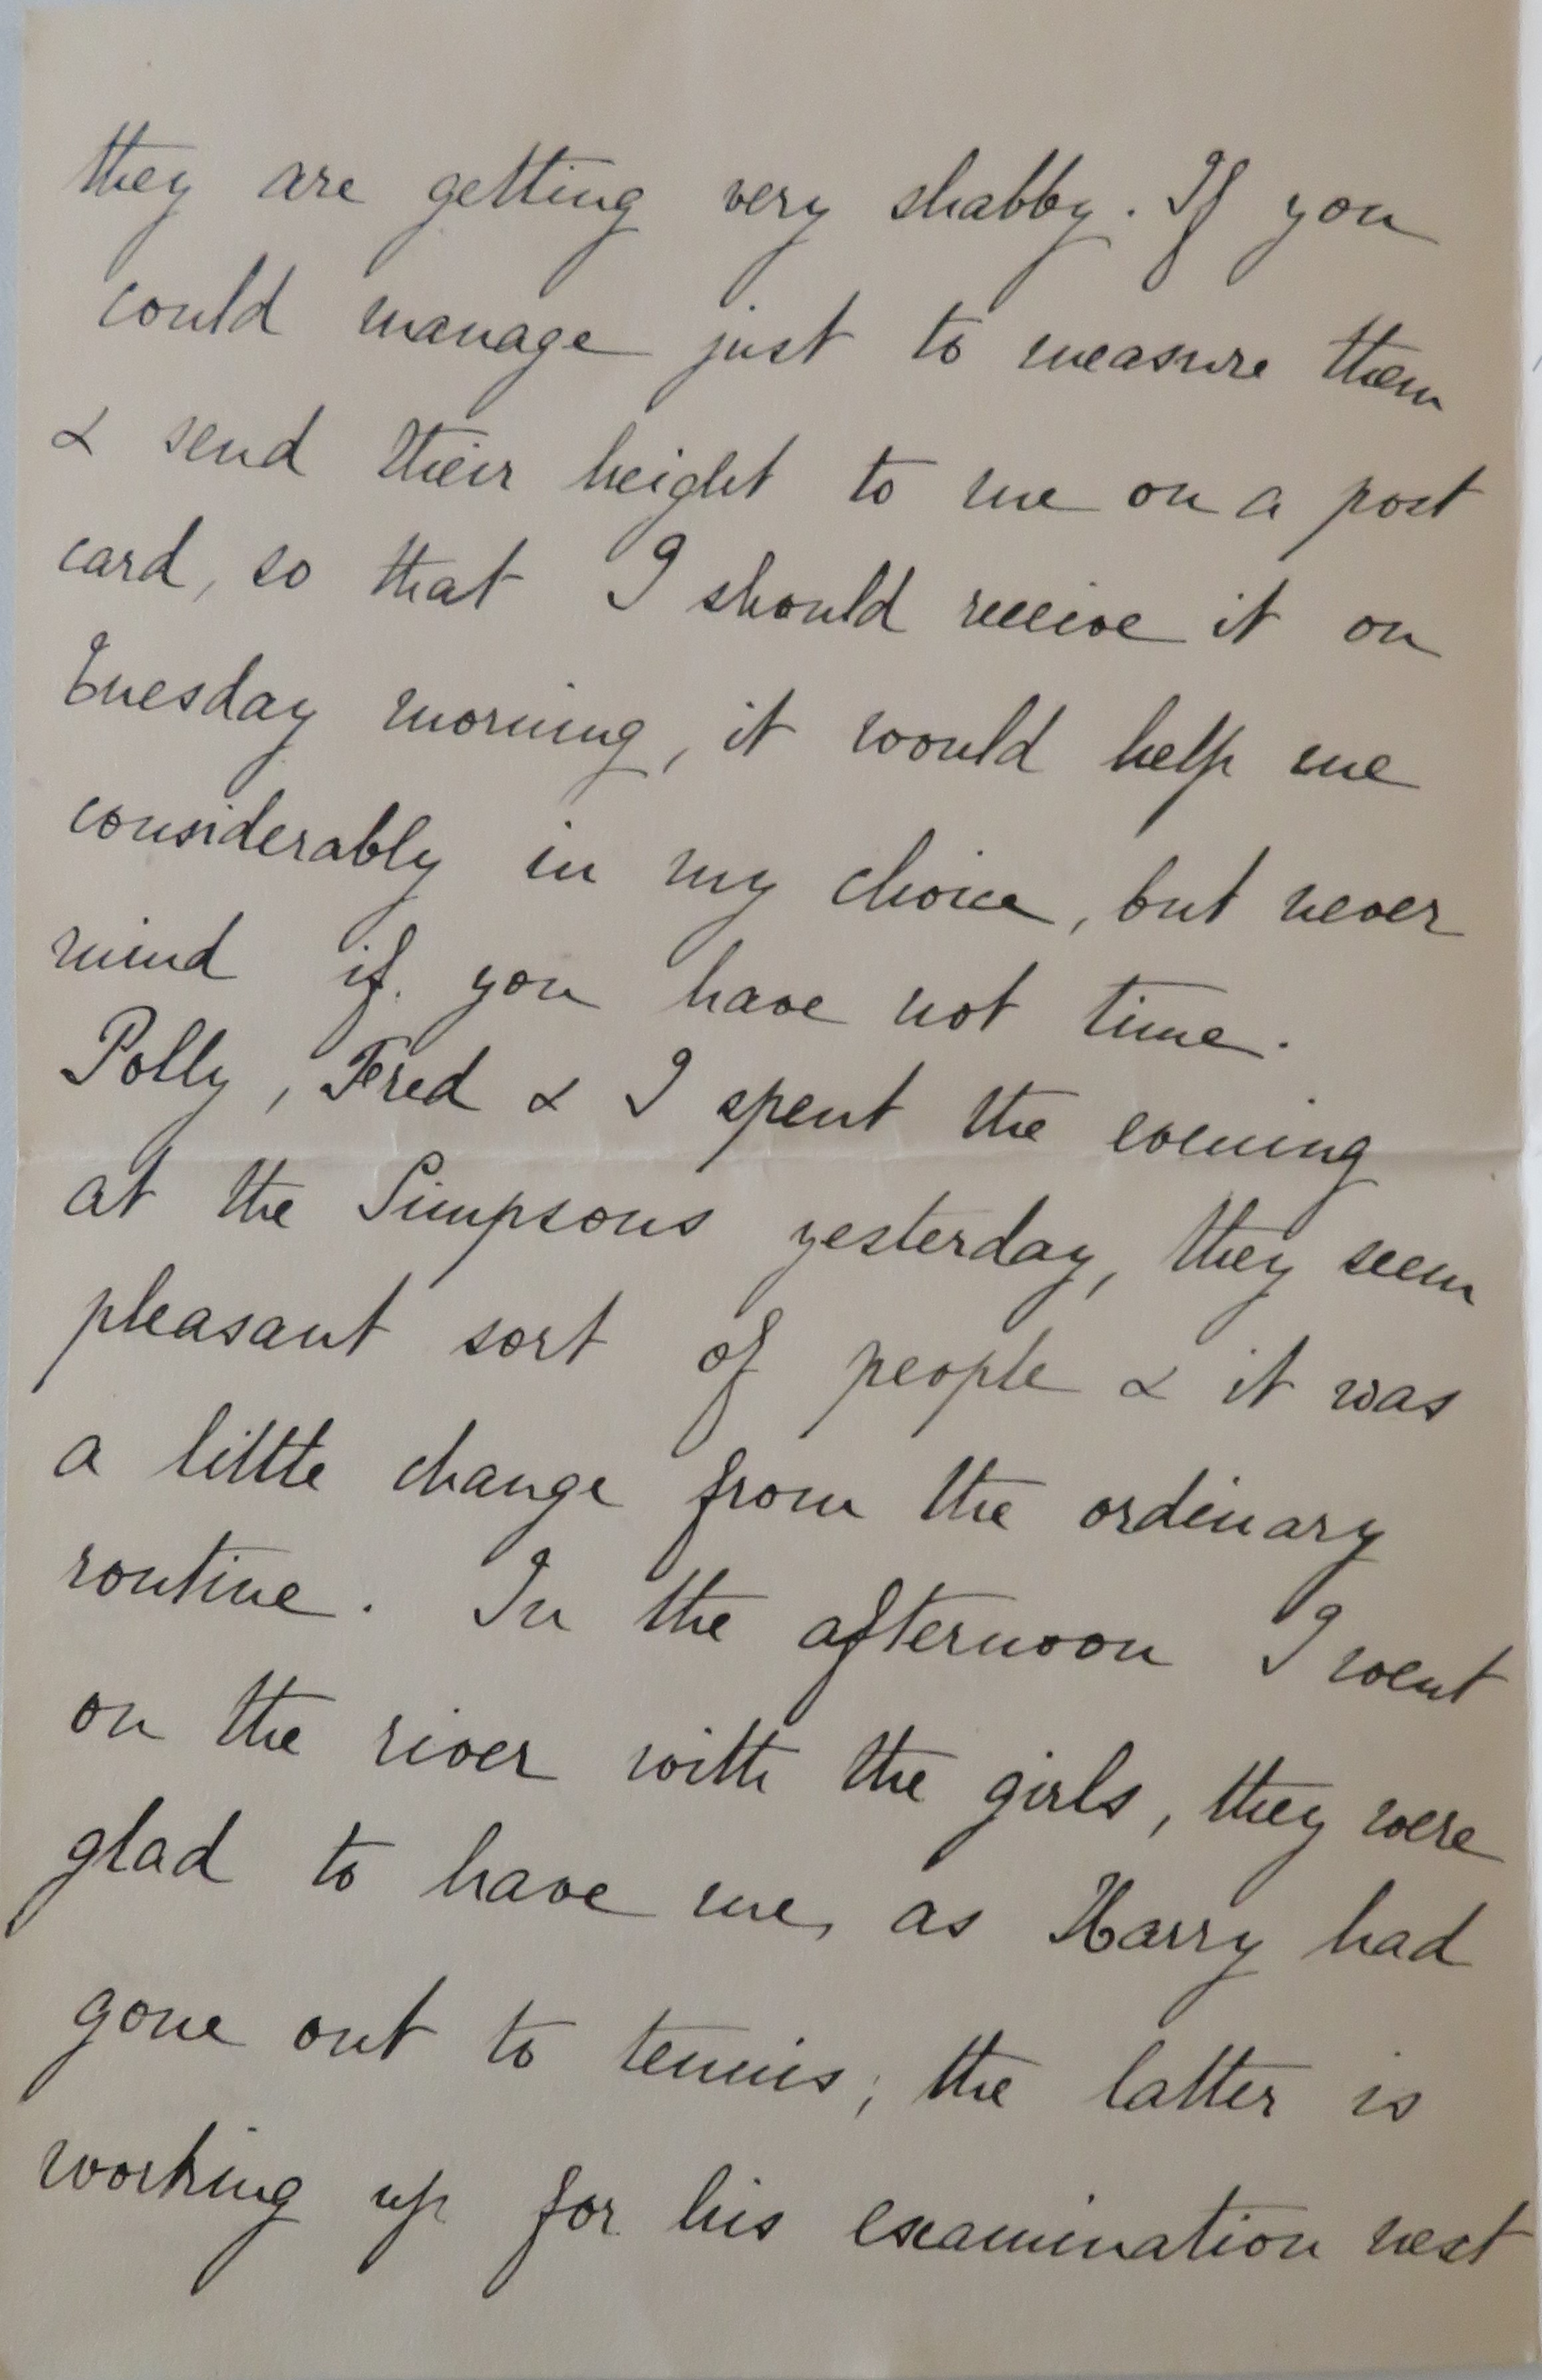 they are getting very shabby. If you
could manage just to measure them
& send their height to me on a post
card, so that I should receive it on
Tuesday morning, it would help me
considerably in my choice, but never
mind if you have not time.
Polly, Fred & I spent the evening
at the Simpsons yesterday, they seem
pleasant sort of people & it was
a little change from the ordinary
routine. In the afternoon I went
on the river with the girls, they were
glad to have me, as Harry had
gone out to tennis; the latter is
working up for his examination next